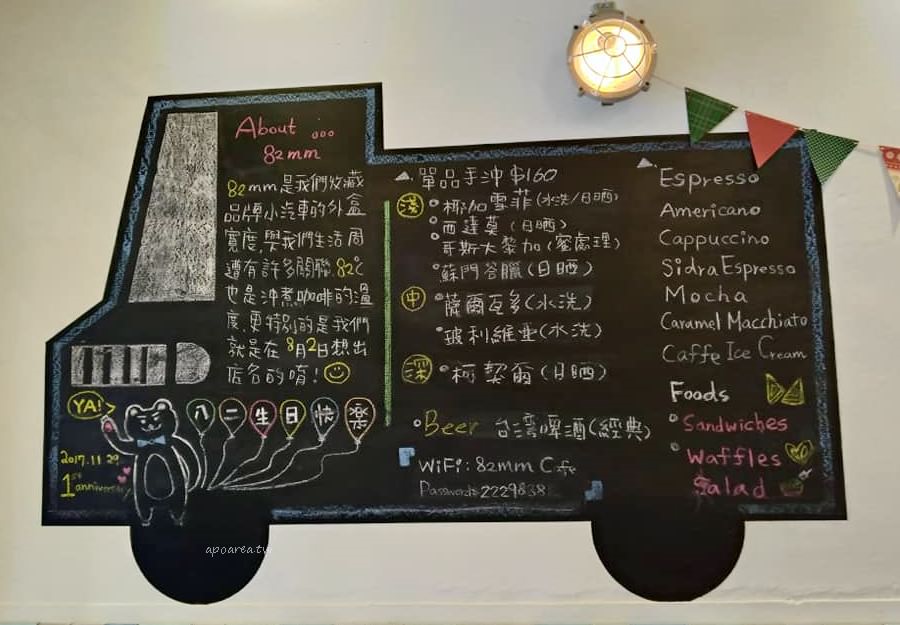 About ...
82mm
82mm是我們收藏
品牌小汽車的外盒
寬度,與我們生活周
遭有許多關聯.82℃
也是沖煮咖啡的溫
度.更特別的是我們
就是在8月2日想出
店名的唷!
YA!
八二生日快樂
2017.11.29
1st anniversary
單品手沖$160
淺
椰加雪菲(水洗/日晒)
西達莫(日晒)
哥斯大黎加(蜜處理)
蘇門答臘(日晒)
中
薩爾瓦多(水洗)
玻利維亞(水洗)
深
柯契爾(日晒)
Beer 台灣啤酒(經典)
WiFi:82mm Cafe
Password:2229838
Espresso
Americano
Cappuccino
Sidra Espresso
Mocha
Caramel Macchiato
Caffe Ice Cream
Foods
Sandwiches
Waffles
Salad
apoarea.tw